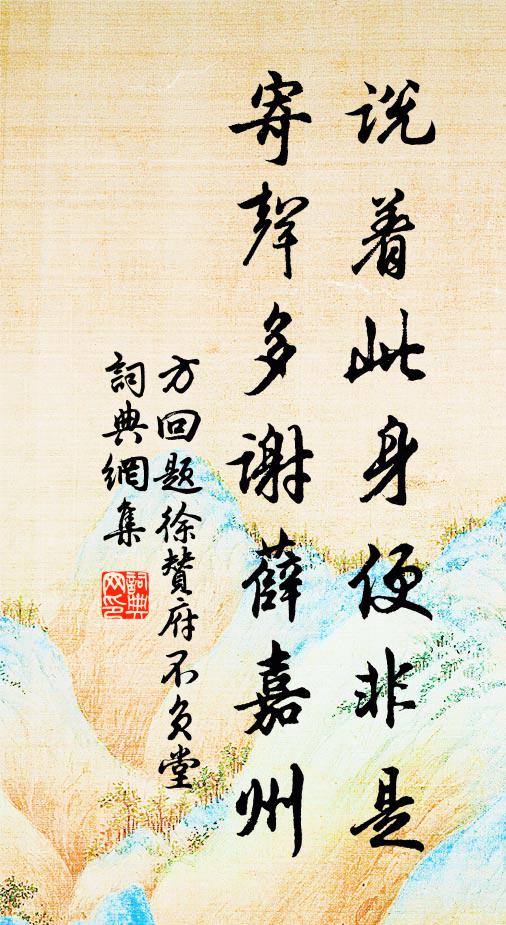 说着此身便非是
寄聲多谢薛嘉州
方回题徐赞府不负堂
詞典網集
詞典
网印